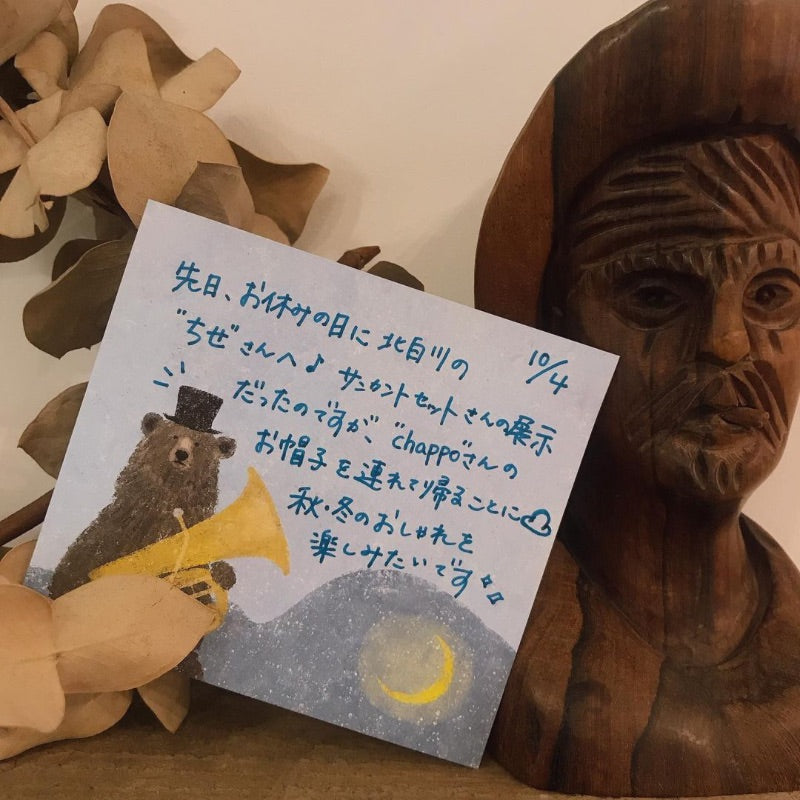 10/4
先日、お休みの日に 北白川の
"ちせ"さんへ♪ サンカントセットさんの展示
だったのですが、"chappo"さんの
お帽子を連れて帰ることに
秋・冬のおしゃれを
楽しみたいです